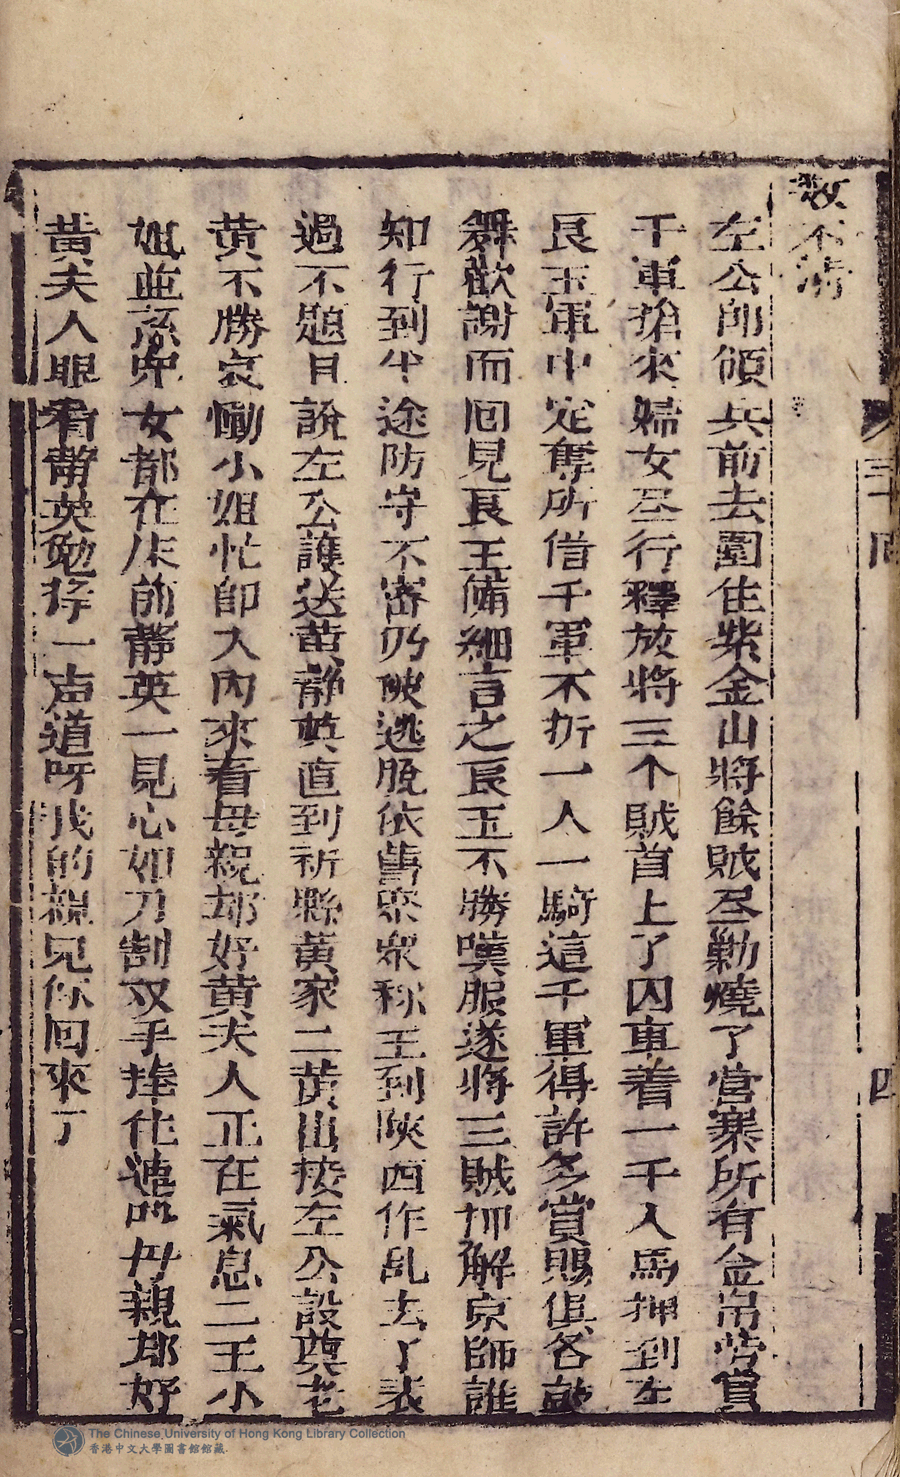 數不清
左公卽領兵前去圍住紫金山將餘賊尽勦燒了營寨所有金帛勞賞
千軍搶來婦女尽行釋放將三个賊首上了囚車着一千人馬押到左
良玉軍中定奪所借千軍不折一人一騎這千軍得許多賞賜俱各鼓
舞歡謝而回見良玉備細言之良玉不勝嘆服遂將三賊卽解京師誰
知行到半途防守不審乃被逃脫依舊聚衆称王到陝西作乱去了表
過不題且說左公護送黄静英直到祈縣黃家二黄出接左公設奠老
黄不勝哀慟小姐忙卽入內來看母親却好黄夫人正在氣息二王小
姐並孫兒女都在床前靜英一見心如刀割双手捧住連叫母親却好
黃夫人眼看靜英勉挣一声道呀我的親兒你回來了
三十回
四
The Chinese University of Hong Kong Library Collection
香港中文大學圖書館館藏